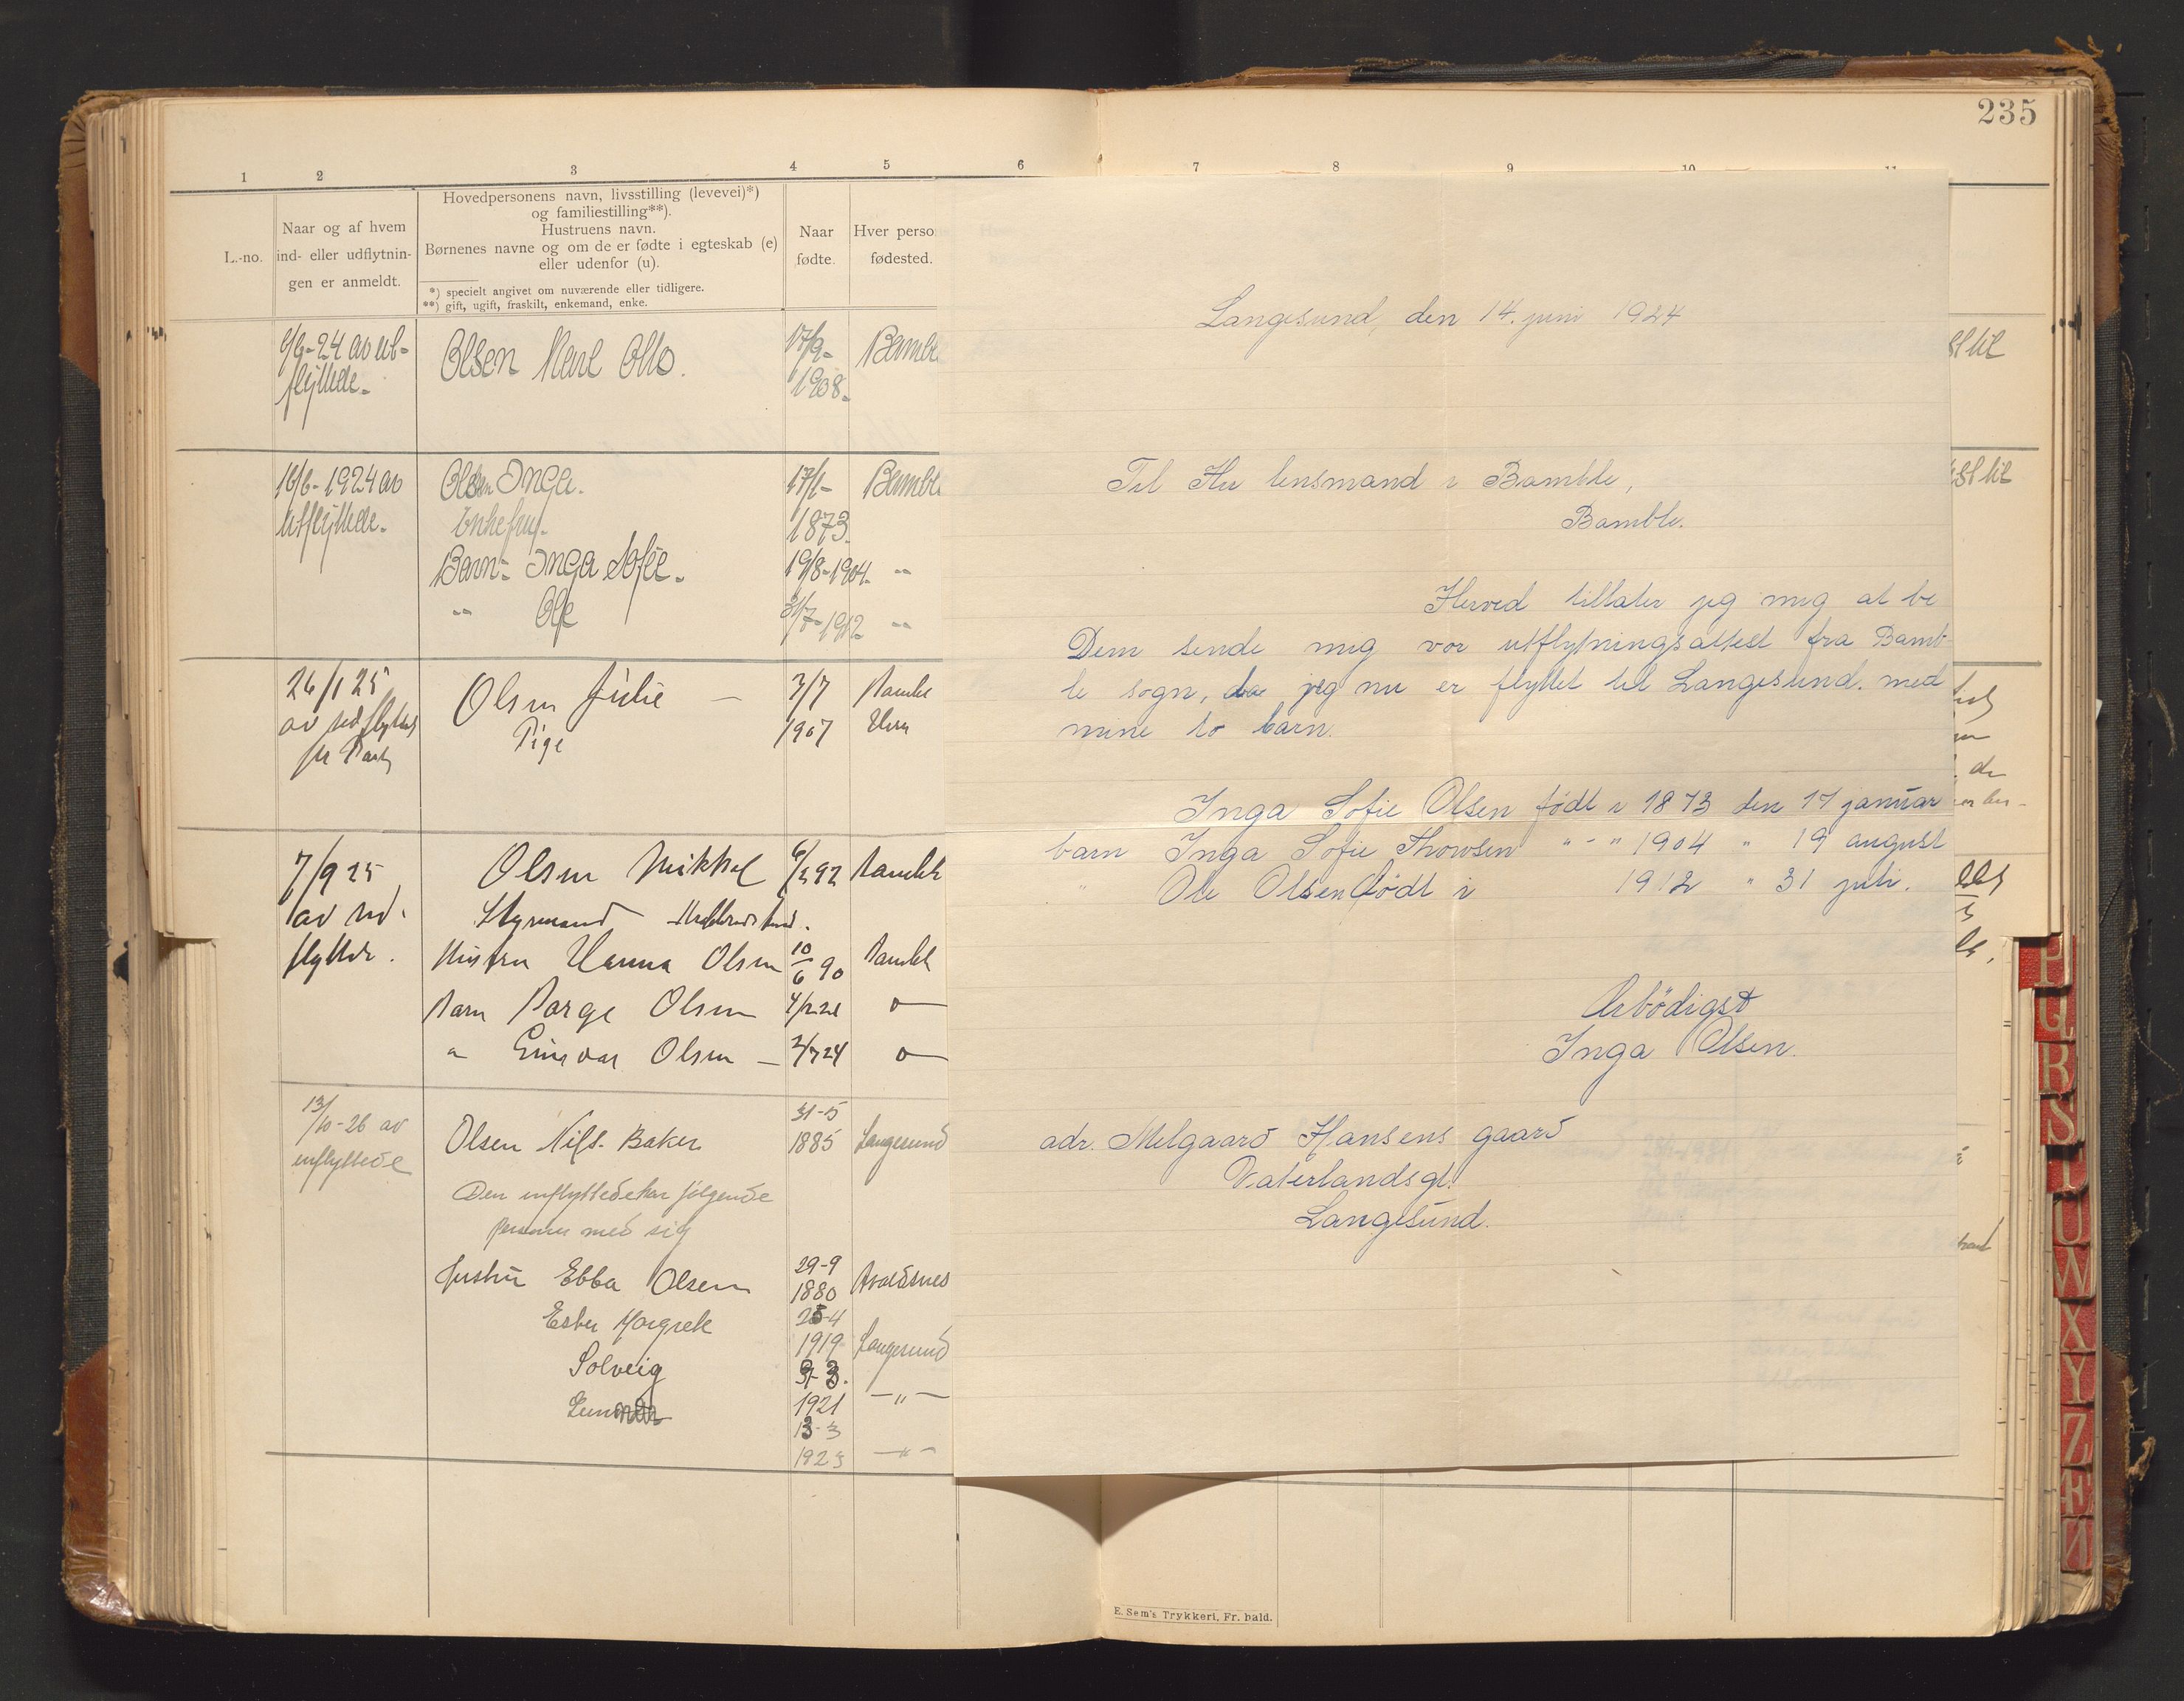 235
1 2 3 4 5 6 7 8 9 10 11
L.-no.
Naar og af hvem
ind- eller udflytnin-
gen er anmeldt.
Hovedpersonens navn, livsstilling (levevei)*)
og familiestilling**).
Hustruens navn.
Børnenes navne og om de er fødte i egteskab (e)
eller udenfor (u).
*) specielt angivet om nuværende eller tidligere.
**) gift, ugift, fraskilt, enkemand, enke.
Naar
fødte.
Hver perso
fødested.
6/6-24 av ut-
flyttede.
Olsen Karl Otto.
17/9-
1908.
Bamble
16/6-1924 av
utflyttede.
Olsen Inga.
Enkefru.
17/1-
1873.
Bamble
Barn- Inga Sofie.
19/8-1904. -"-
-"- Ole
31/7-1912 -"-
26/1 25
av udflytted
Olsen Julie —
Pige
3/7
1907
Bamble
7/9 25
av ud-
flytter.
Olsen Mikkel
6/2 92
Bamble
Styrmand
Hustru Hanna Olsen
10/6 90
Bamble
Barn Borge Olsen
" Einar Olsen —
2/7 24
13/10-26 av
innflyttede
Olsen Nils. Baker
31-5
1885
Langesund
Den innflyttede har følgende
personer med sig
Hustru Ebba Olsen
29-9
1880
Avaldsnes
Ester Margrete
25-4
1919
Langesund
Solveig
1921
—"—
Gunnar
13-3
1923
—"—
Langesund, den 14. juni 1924
Til Hr lensmand i Bamble,
Bamble.
Herved tillater jeg mig at be
Dem sende mig vor utflytningsattest fra Bamb-
le sogn, da jeg nu er flyttet til Langesund. med
mine to barn.
Inga Sofie Olsen født i 1873 den 17 januar
barn Inga Sofie Thowsen " - " 1904 " 19 august
" Ole Olsen født i 1912 " 31 juli.
Ærbödigst
Inga Olsen.
adr. Melgaard Hansens gaard
Vaterlandsgt.
Langesund.
E. Sem's Trykkeri, Fr. hald.
P
Q
R
S
T
U
W
X
Y
Z
Æ
Ø